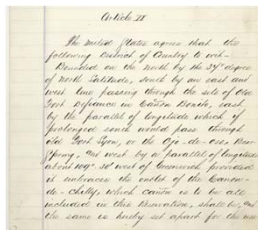 Article II
The United States agree that the
following District of Country to wit:
Bounded on the north by the 37th degree
of North Latitude, south by an east and
west line passing through the site of Old
Fort Defiance in Cañon Bonito, east
by the parallel of longitude which if
prolonged south would pass through
old Fort Lyon, or the Ojo-de-oso, Bear
Spring, and west by a parallel of longitude
about 109° 30' west of Greenwich provided
it embraces the outlet of the Canon-
de-Chilly, which canon is to be all
included in this Reservation, shall be, and
the same is hereby set apart for the use